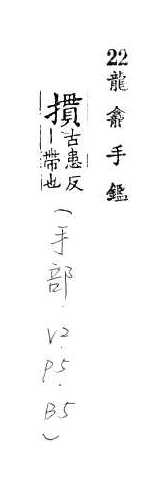 22龍龕手鑑
摜古患反
｜帶也
(手部.V2.P5.B5)